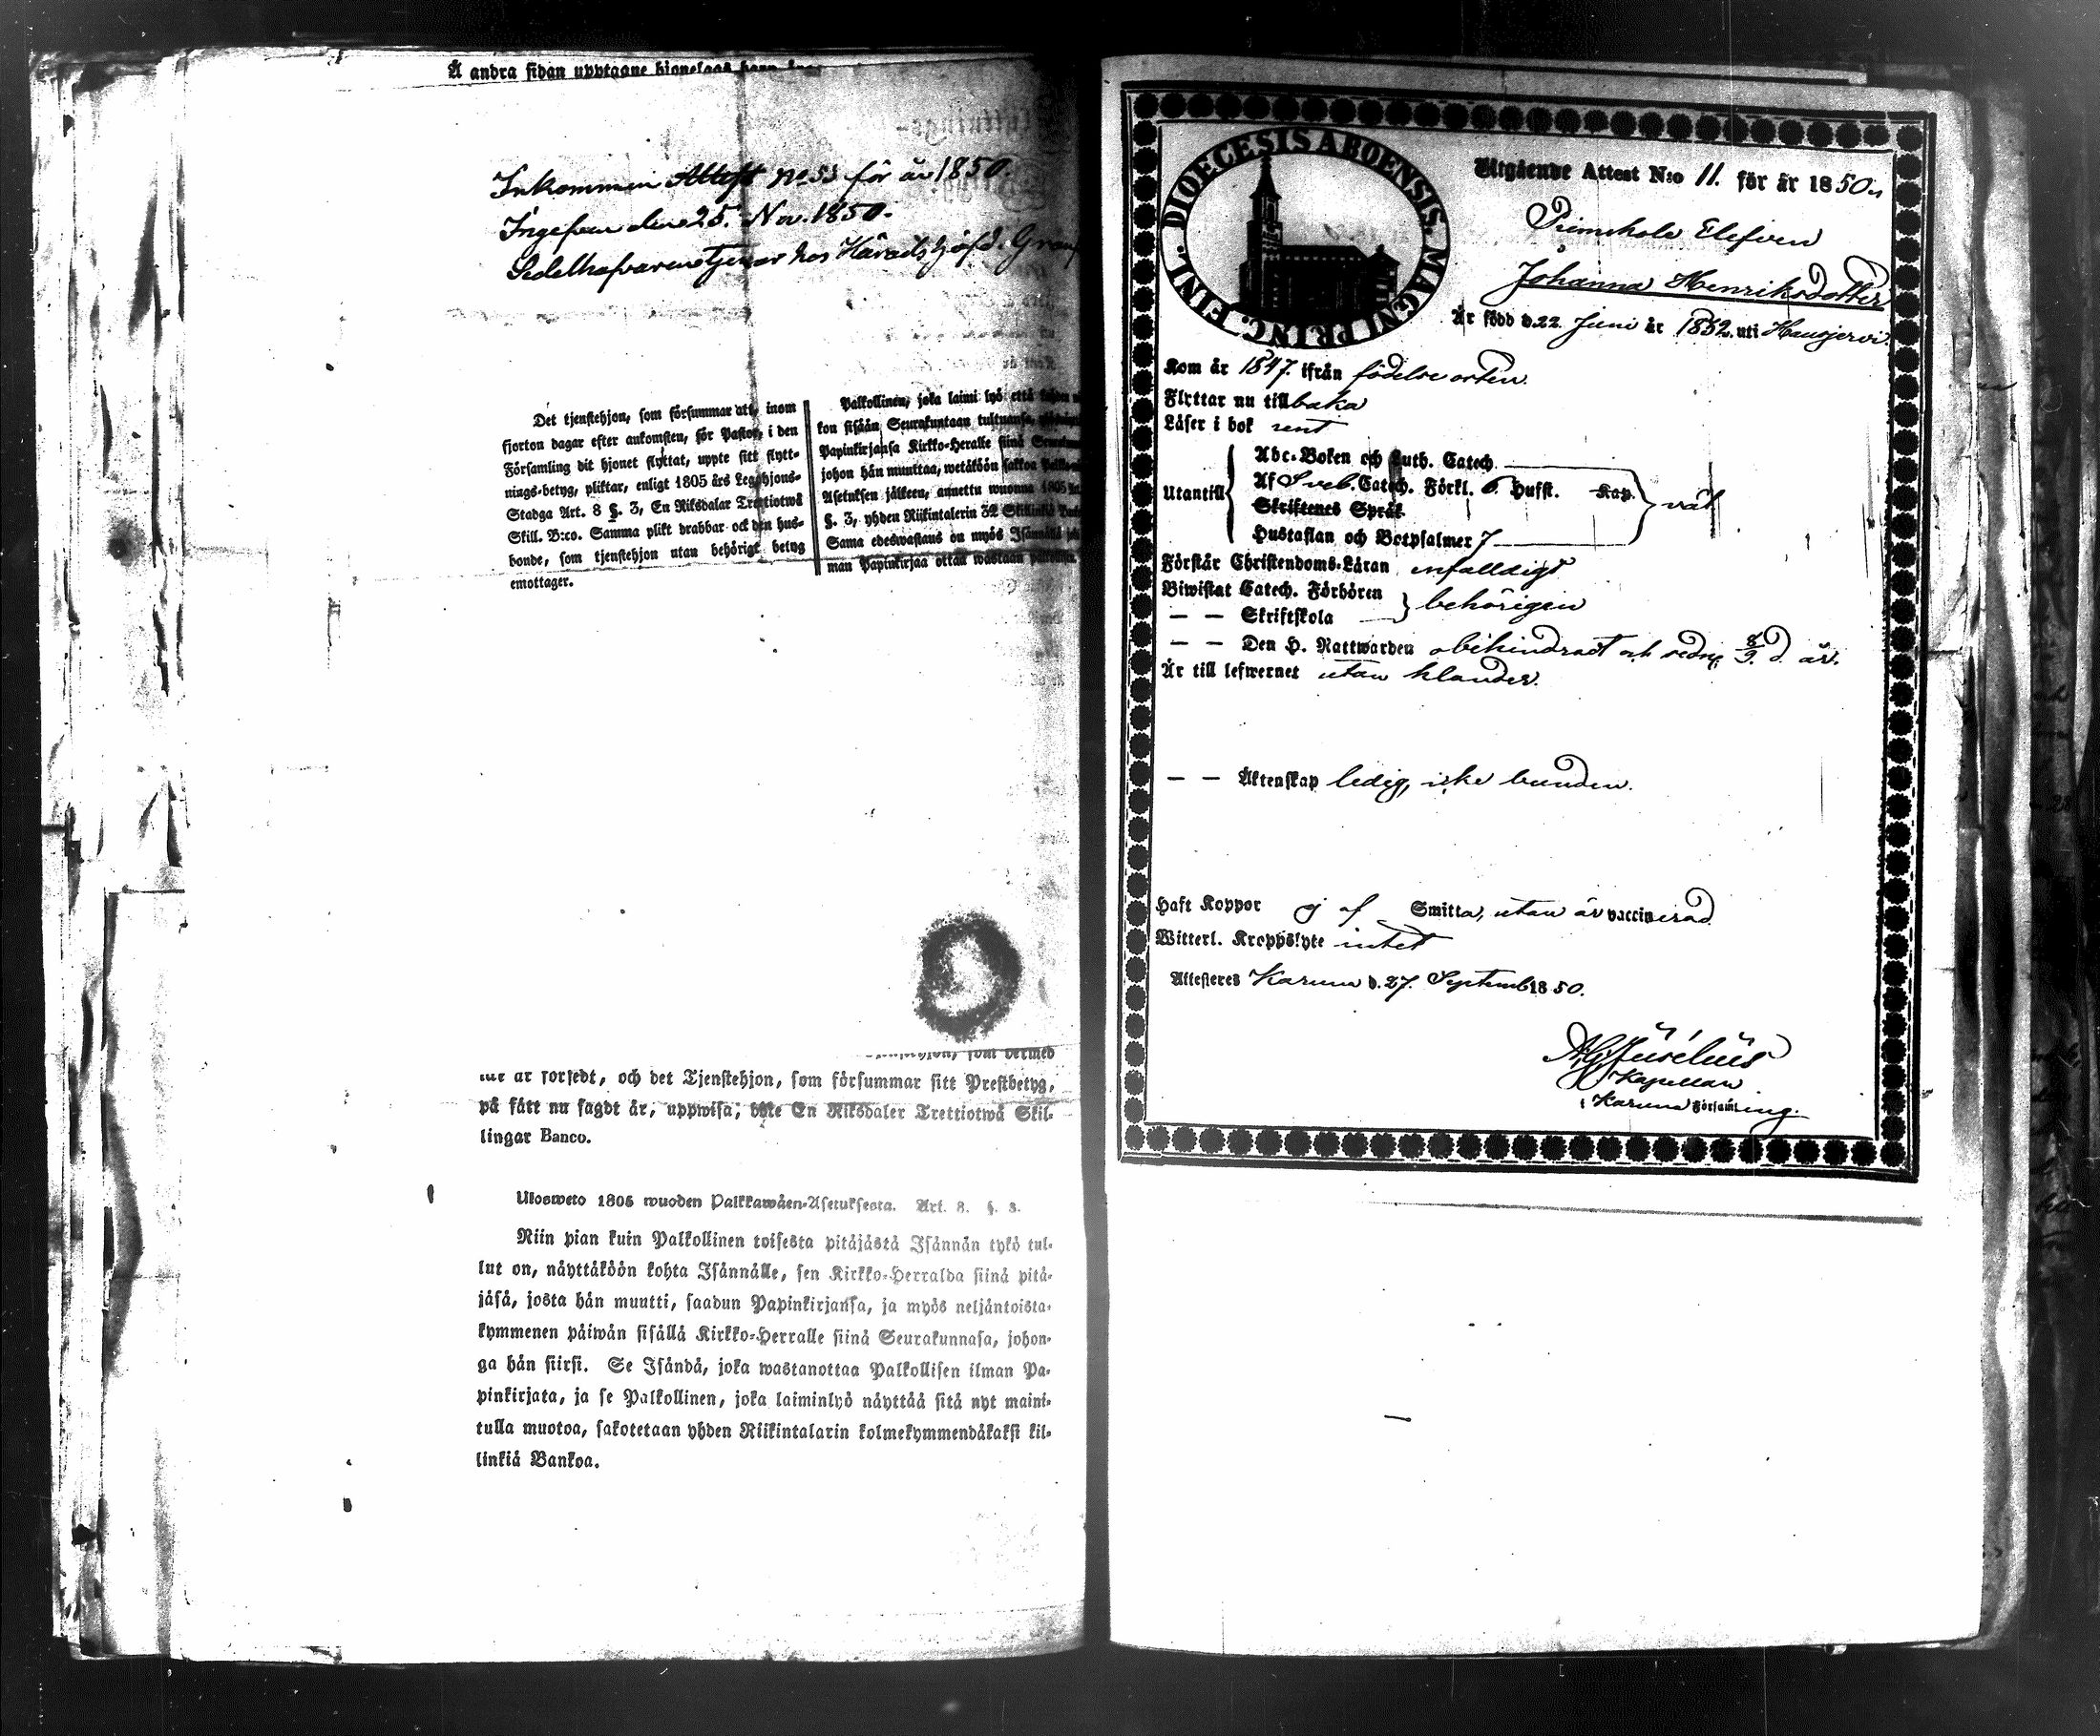 Å andra sidan upptagne
Inkommen Attest No 53 för år 1850.
den 25. Nov. 1850.
Sedelhafvaren tjenar hos Häradshöfd.
Det tjenstehjon, som försummar att, inom
fjorton dagar efter ankomsten, för Pastor, i den
Församling dit hjonet flyttat, uppte sitt flytt-
nings-betyg, pliktar, enligt 1805 års Legohjons-
Stadga Art. 8 §. 3, En Riksdalar Trettiotwå
Skill. B:co. Samma plikt drabbar ock den hus-
bonde, som tjenstehjon utan behörigt betyg
emottager.
Palkollinen, joka laimi lyö että
kon sisään Seurakuntaan tultuansa,
Papinkirjansa Kirkko-Heralle siinä
johon hän munttaa, wetäköön sakkoa
Asetuksen jälkeen, annettu wuonna 1805
§. 3, yhden Riikintalerin 32 Skillinkiä
Sama edeswastaus on myös Isännällä
man Papinkirjaa ottaa wastaan
som dermed
är försedt, och det Tjenstehjon, som försummar sitt Prestbetyg,
på sätt nu sagdt är, uppwisa, böte En Riksdaler Trettiotwå Skil-
lingar Banco.
Ulosweto 1805 wuoden Palkkawäen-Asetuksesta. Art. 8. §. 3.
Niin pian kuin Palkollinen toisesta pitäjästä Isännän tykö tul-
lut on, näyttäköön kohta Isännälle, sen Kirkko-Herralda siinä pitä-
jäsä, josta hän muutti, saadun Papinkirjansa, ja myös neljäntoista-
kymmenen päiwän sisällä Kirkko-Herralle siinä Seurakunnasa, johon-
ga hän siirsi. Se Isändä, joka wastanottaa Palkollisen ilman Pa-
pinkirjata, ja se Palkollinen, joka laiminlyö näyttää sitä nyt maini-
tulla muotoa, sakotetaan yhden Riikintalarin kolmekymmendäkaksi kil-
linkiä Bankoa.
DIOECESIS ABOENSIS. MAGNI PRINC. FINL.
Utgående Attest N:o 11. för år 1850.
Elefven
Johanna Henriksdotter
Är född d. 22. Juni år 1832. uti Hausjervi.
Kom år 1847. ifrån födelse orten.
Flyttar nu till baka
Läser i bok rent
Utantill
Abc-Boken och Luth. Catech.
Af Sveb. Catech. Förkl. 6. Hufst. Kap.
Skriftenes Språk
Hustaflan och Botpsalmer 7
väl
Förstår Christendoms-Läran enfalldigt
Biwistat Catech. Förhören
— — Skriftskola
behörigen
— — Den H. Nattwarden obehindradt och sedn. 8/9. d. år.
Är till lefwernet utan klander.
— — Äktenskap ledig, icke bunden.
Haft Koppor ej af Smitta, utan är vaccinerad
Witterl. Kroppslyte intet
Attesteres Karuna d. 27. Septemb 1850.
Kapellan
i Karuna Församling.